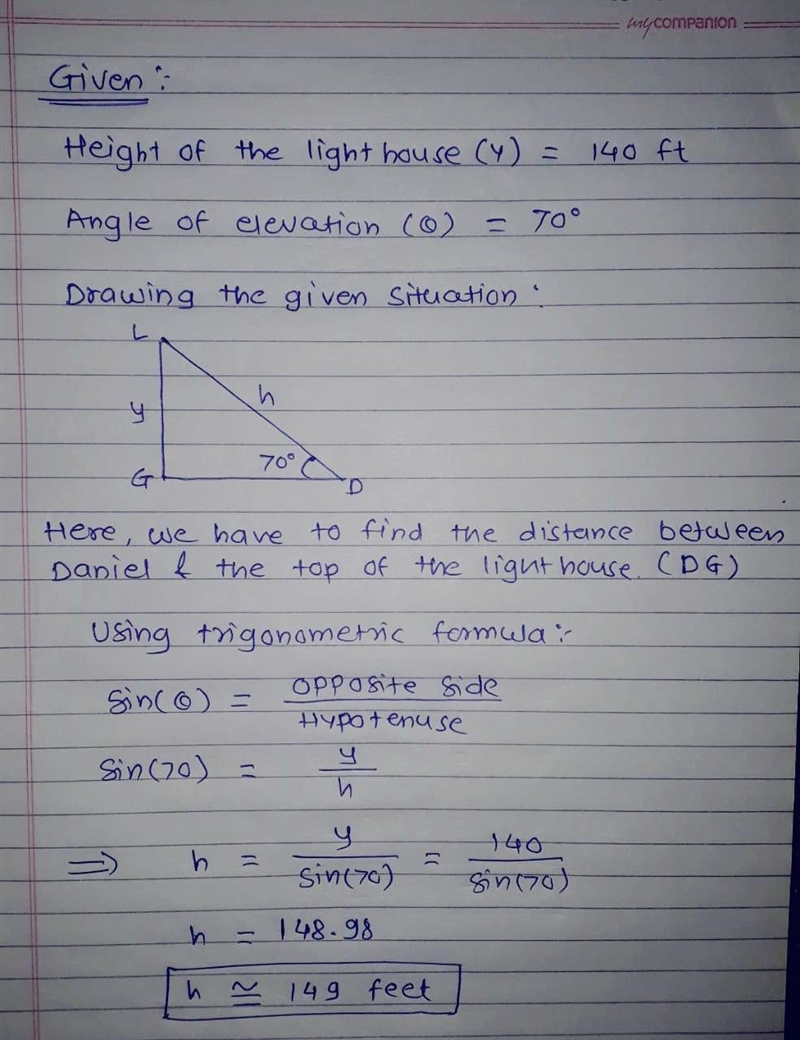 mycompanion
Given :-
Height of the light house (y) = 140 ft
Angle of elevation (θ) = 70°
Drawing the given situation :
L
y
h
70°
G
D
Here, we have to find the distance between
Daniel & the top of the light house. (DG)
Using trigonometric formula :-
Sin(θ) = Opposite Side / Hypotenuse
Sin(70) = y / h
⇒ h = y / Sin(70) = 140 / Sin(70)
h = 148.98
h ≅ 149 feet